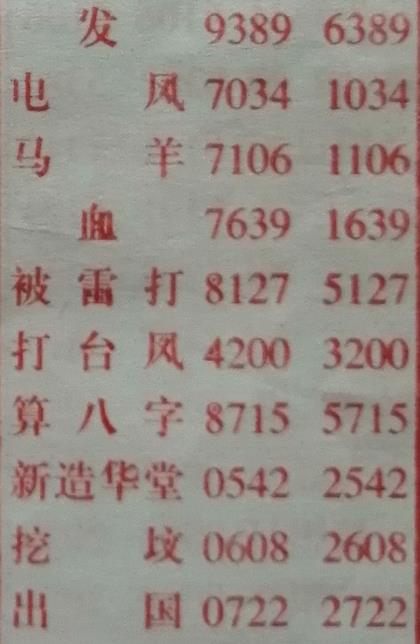 发 9389 6389
电风 7034 1034
马羊 7106 1106
血 7639 1639
被雷打 8127 5127
打台风 4200 3200
算八字 8715 5715
新造华堂 0542 2542
挖坟 0608 2608
出国 0722 2722